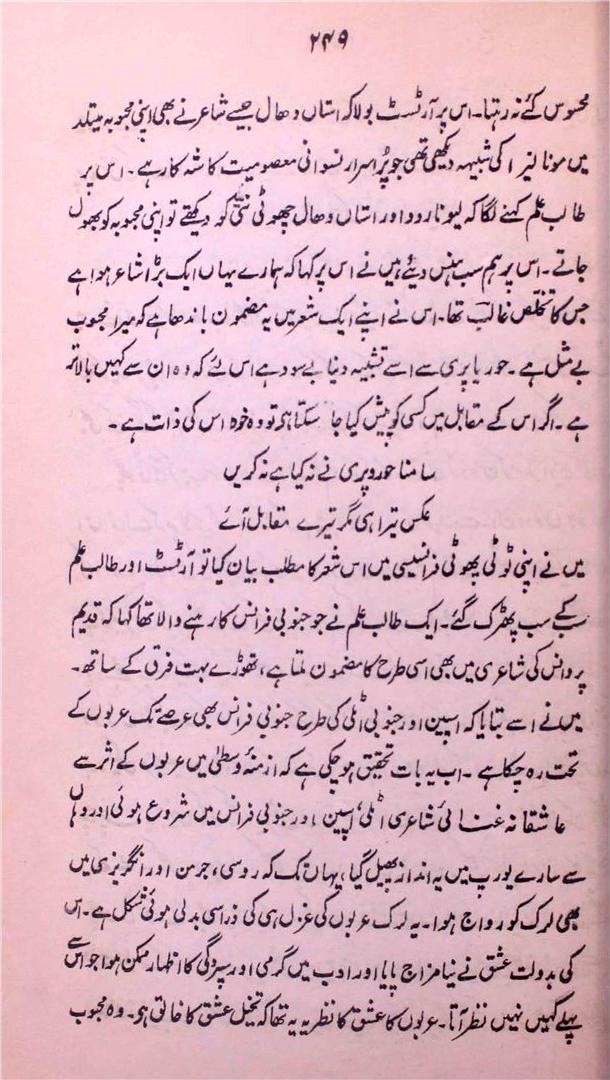 ۲۴۹
محسوس کئے نہ رہتا۔ اس پر آرٹسٹ بولا کہ استاں دھال جیسے شاعر نے بھی اپنی محبوبہ میتلد
میں مونا لیزا کی شبیہہ دیکھی تھی جو پُر اسرار نسوانی معصومیت کا شہ کار ہے۔ اس پر
طالب علم کہنے لگا کہ لیونا ردو اور استاں دھال چھوٹی نتی کو دیکھتے تو اپنی محبوبہ کو بھول
جاتے۔ اس پر ہم سب ہنس دیئے میں نے اس پر کہا کہ ہمارے یہاں ایک بڑا شاعر ہوا ہے
جس کا تخلص غالب تھا۔ اس نے اپنے ایک شعر میں یہ مضمون باندھا ہے کہ میرا محبوب
بے مثل ہے۔ حور یا پری سے اسے تشبیہ دینا بے سود ہے اس لئے کہ وہ ان سے کہیں بالاتر
ہے۔ اگر اس کے مقابل میں کسی کو پیش کیا جا سکتا ہی تو وہ خود اس کی ذات ہے۔
سامنا حور و پری نے نہ کیا ہے نہ کریں
عکس تیرا ہی مگر تیرے مقابل آئے
میں نے اپنی ٹوٹی پھوٹی فرانسیسی میں اس شعر کا مطلب بیان کیا تو آرٹسٹ اور طالب علم
سب کے سب پھڑک گئے۔ ایک طالب علم نے جو جنوبی فرانس کا رہنے والا تھا کہا کہ قدیم
پروانس کی شاعری میں بھی اسی طرح کا مضمون ملتا ہے، تھوڑے بہت فرق کے ساتھ۔
میں نے اسے بتایا کہ اسپین اور جنوبی اٹلی کی طرح جنوبی فرانس بھی عرصے تک عربوں کے
تحت رہ چکا ہے۔ اب یہ بات تحقیق ہو چکی ہے کہ ازمنۂ وسطیٰ میں عربوں کے اثر سے
عاشقانہ غنائی شاعری اٹلی، اسپین اور جنوبی فرانس میں شروع ہوئی اور وہاں
سے سارے یورپ میں یہ انداز پھیل گیا، یہاں تک کہ روسی، جرمن اور انگریزی میں
بھی لرک کو رواج ہوا۔ یہ لرک عربوں کی غزل ہی کی ذرا سی بدلی ہوئی شکل ہے۔ اس
کی بدولت عشق نے نیا مزاج پایا اور ادب میں گرمی اور سپردگی کا اظہار ممکن ہوا جو اس سے
پہلے کہیں نہیں نظر آتا۔ عربوں کا عشق کا نظریہ یہ تھا کہ تخیل عشق کا خالق ہو۔ وہ محبوب